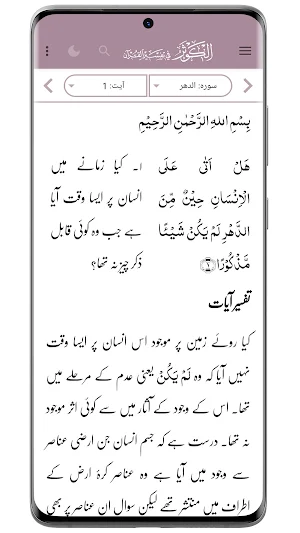 الکوثر فی تفسیر القرآن
سورہ: الدھر
آیت: 1
بِسْمِ اللهِ الرَّحْمٰنِ الرَّحِيْمِ
هَلْ اَتٰى عَلَى
الْاِنْسَانِ حِيْنٌ مِّنَ
الدَّهْرِ لَمْ يَكُنْ شَيْـًٔا
مَّذْكُوْرًا﴿۱﴾
۱۔ کیا زمانے میں
انسان پر ایسا وقت آیا
ہے جب وہ کوئی قابل
ذکر چیز نہ تھا؟
تفسیر آیات
کیا روئے زمین پر موجود اس انسان پر ایسا وقت
نہیں آیا کہ وہ لَمْ یَکُنْ یعنی عدم کے مرحلے میں
تھا۔ اس کے وجود کے آثار میں سے کوئی اثر موجود
نہ تھا۔ درست ہے کہ جسم انسان جن ارضی عناصر
سے وجود میں آیا ہے وہ عناصر کرۂ ارض کے
اطراف میں منتشر تھے لیکن سوال ان عناصر پر بھی